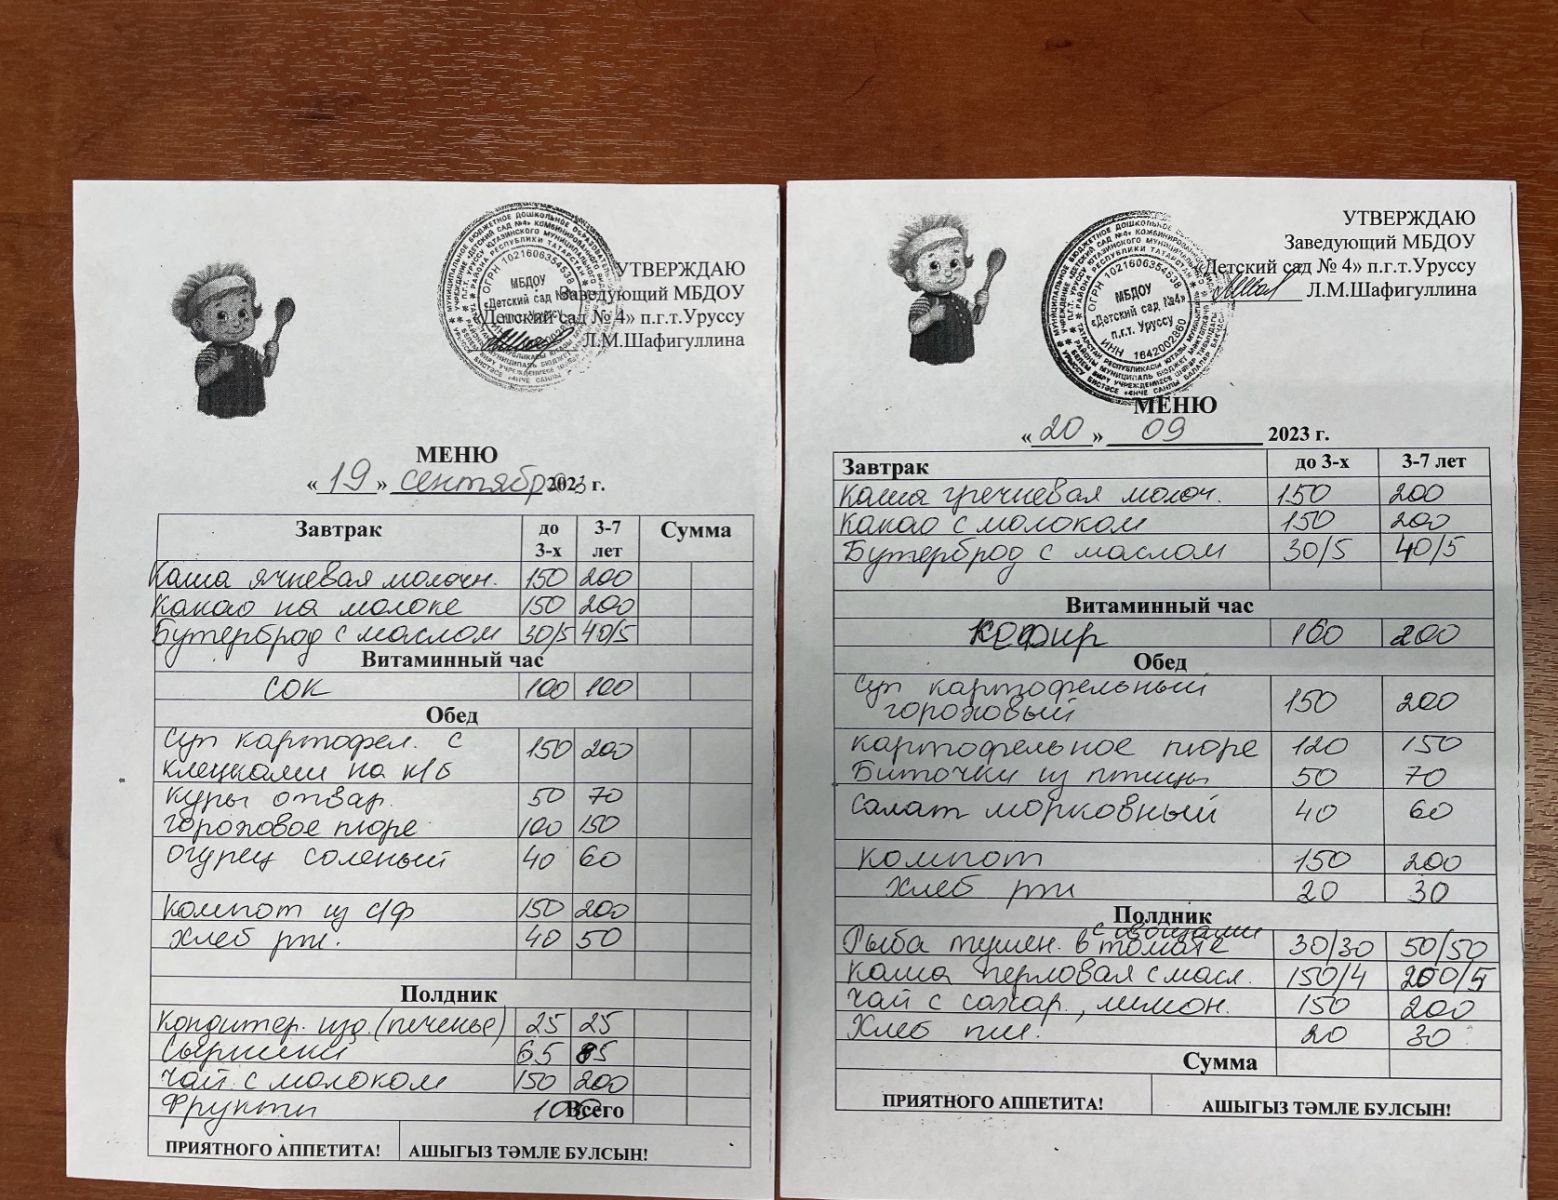 УТВЕРЖДАЮ
Заведующий МБДОУ
«Детский сад № 4» п.г.т.Уруссу
Л.М.Шафигуллина
ОГРН 1021606354538
МБДОУ
«Детский сад №4»
МЕНЮ
«19» сентября 2023 г.
Завтрак до 3-х 3-7 лет Сумма
Каша ячневая молочн. 150 200
Какао на молоке 150 200
Бутерброд с маслом 30/5 40/5
Витаминный час
сок 100 100
Обед
Суп картофел. с 150 200
клецками на к/б
Куры отвар. 50 70
Гороховое пюре 100 150
Огурец соленый 40 60
Компот из с/ф 150 200
Хлеб рж. 40 50
Полдник
Кондитер. изд. (печенье) 25 25
Сырники 65 85
Чай с молоком 150 200
Фрукты 100 Всего
ПРИЯТНОГО АППЕТИТА! АШЫГЫЗ ТӘМЛЕ БУЛСЫН!
УТВЕРЖДАЮ
Заведующий МБДОУ
«Детский сад № 4» п.г.т.Уруссу
Л.М.Шафигуллина
ОГРН 1021606354538
МБДОУ
«Детский сад №4»
п.г.т. Уруссу
ИНН 1642002860
МЕНЮ
«20» 09 2023 г.
Завтрак до 3-х 3-7 лет
Каша гречневая молоч. 150 200
Какао с молоком 150 200
Бутерброд с маслом 30/5 40/5
Витаминный час
Кефир 160 200
Обед
Суп картофельный 150 200
гороховый
картофельное пюре 120 150
Биточки из птицы 50 70
Салат морковный 40 60
Компот 150 200
Хлеб рж 20 30
Полдник
с овощами
Рыба тушен. в томате 30/30 50/50
Каша перловая с масл. 150/4 200/5
Чай с сахар., лимон. 150 200
Хлеб пш. 20 30
Сумма
ПРИЯТНОГО АППЕТИТА! АШЫГЫЗ ТӘМЛЕ БУЛСЫН!